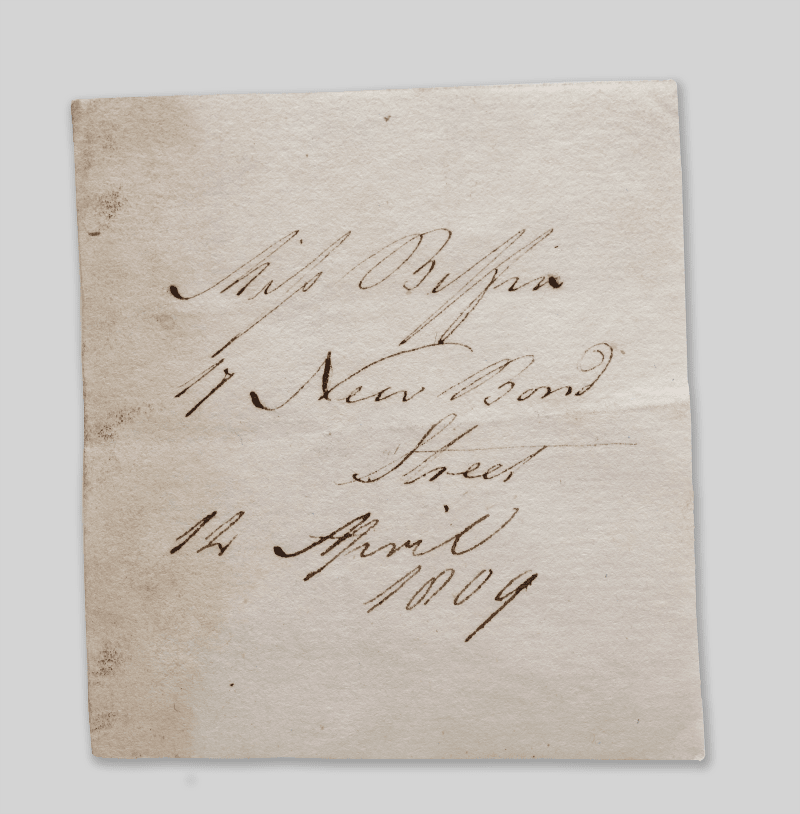 Miſs Biffin
17 New Bond
Street
12 April
1809